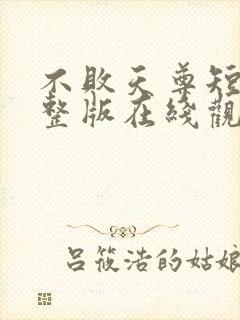 不败天尊短
整版在綫觀
吕筱浩的姑娘